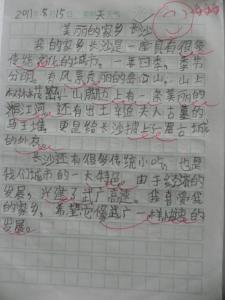 2011年5月15日 天
美丽的家乡 长沙
我的家乡长沙是一座具有很多
传统文化的城市。一年四季,季节
分明,有风景良丽的岳麓山。山上
树林茂密,山脚下有一条美丽的
湘江河,还有出土辛追夫人古墓的
马王堆,更是给长沙披上了古城
的外衣。
长沙还有很多传统小吃,也是
我们城市的一大特色。由于经济的
发展,兴建了武广高速。我喜爱我
的家乡,希望它像武广一样快速的
发展。